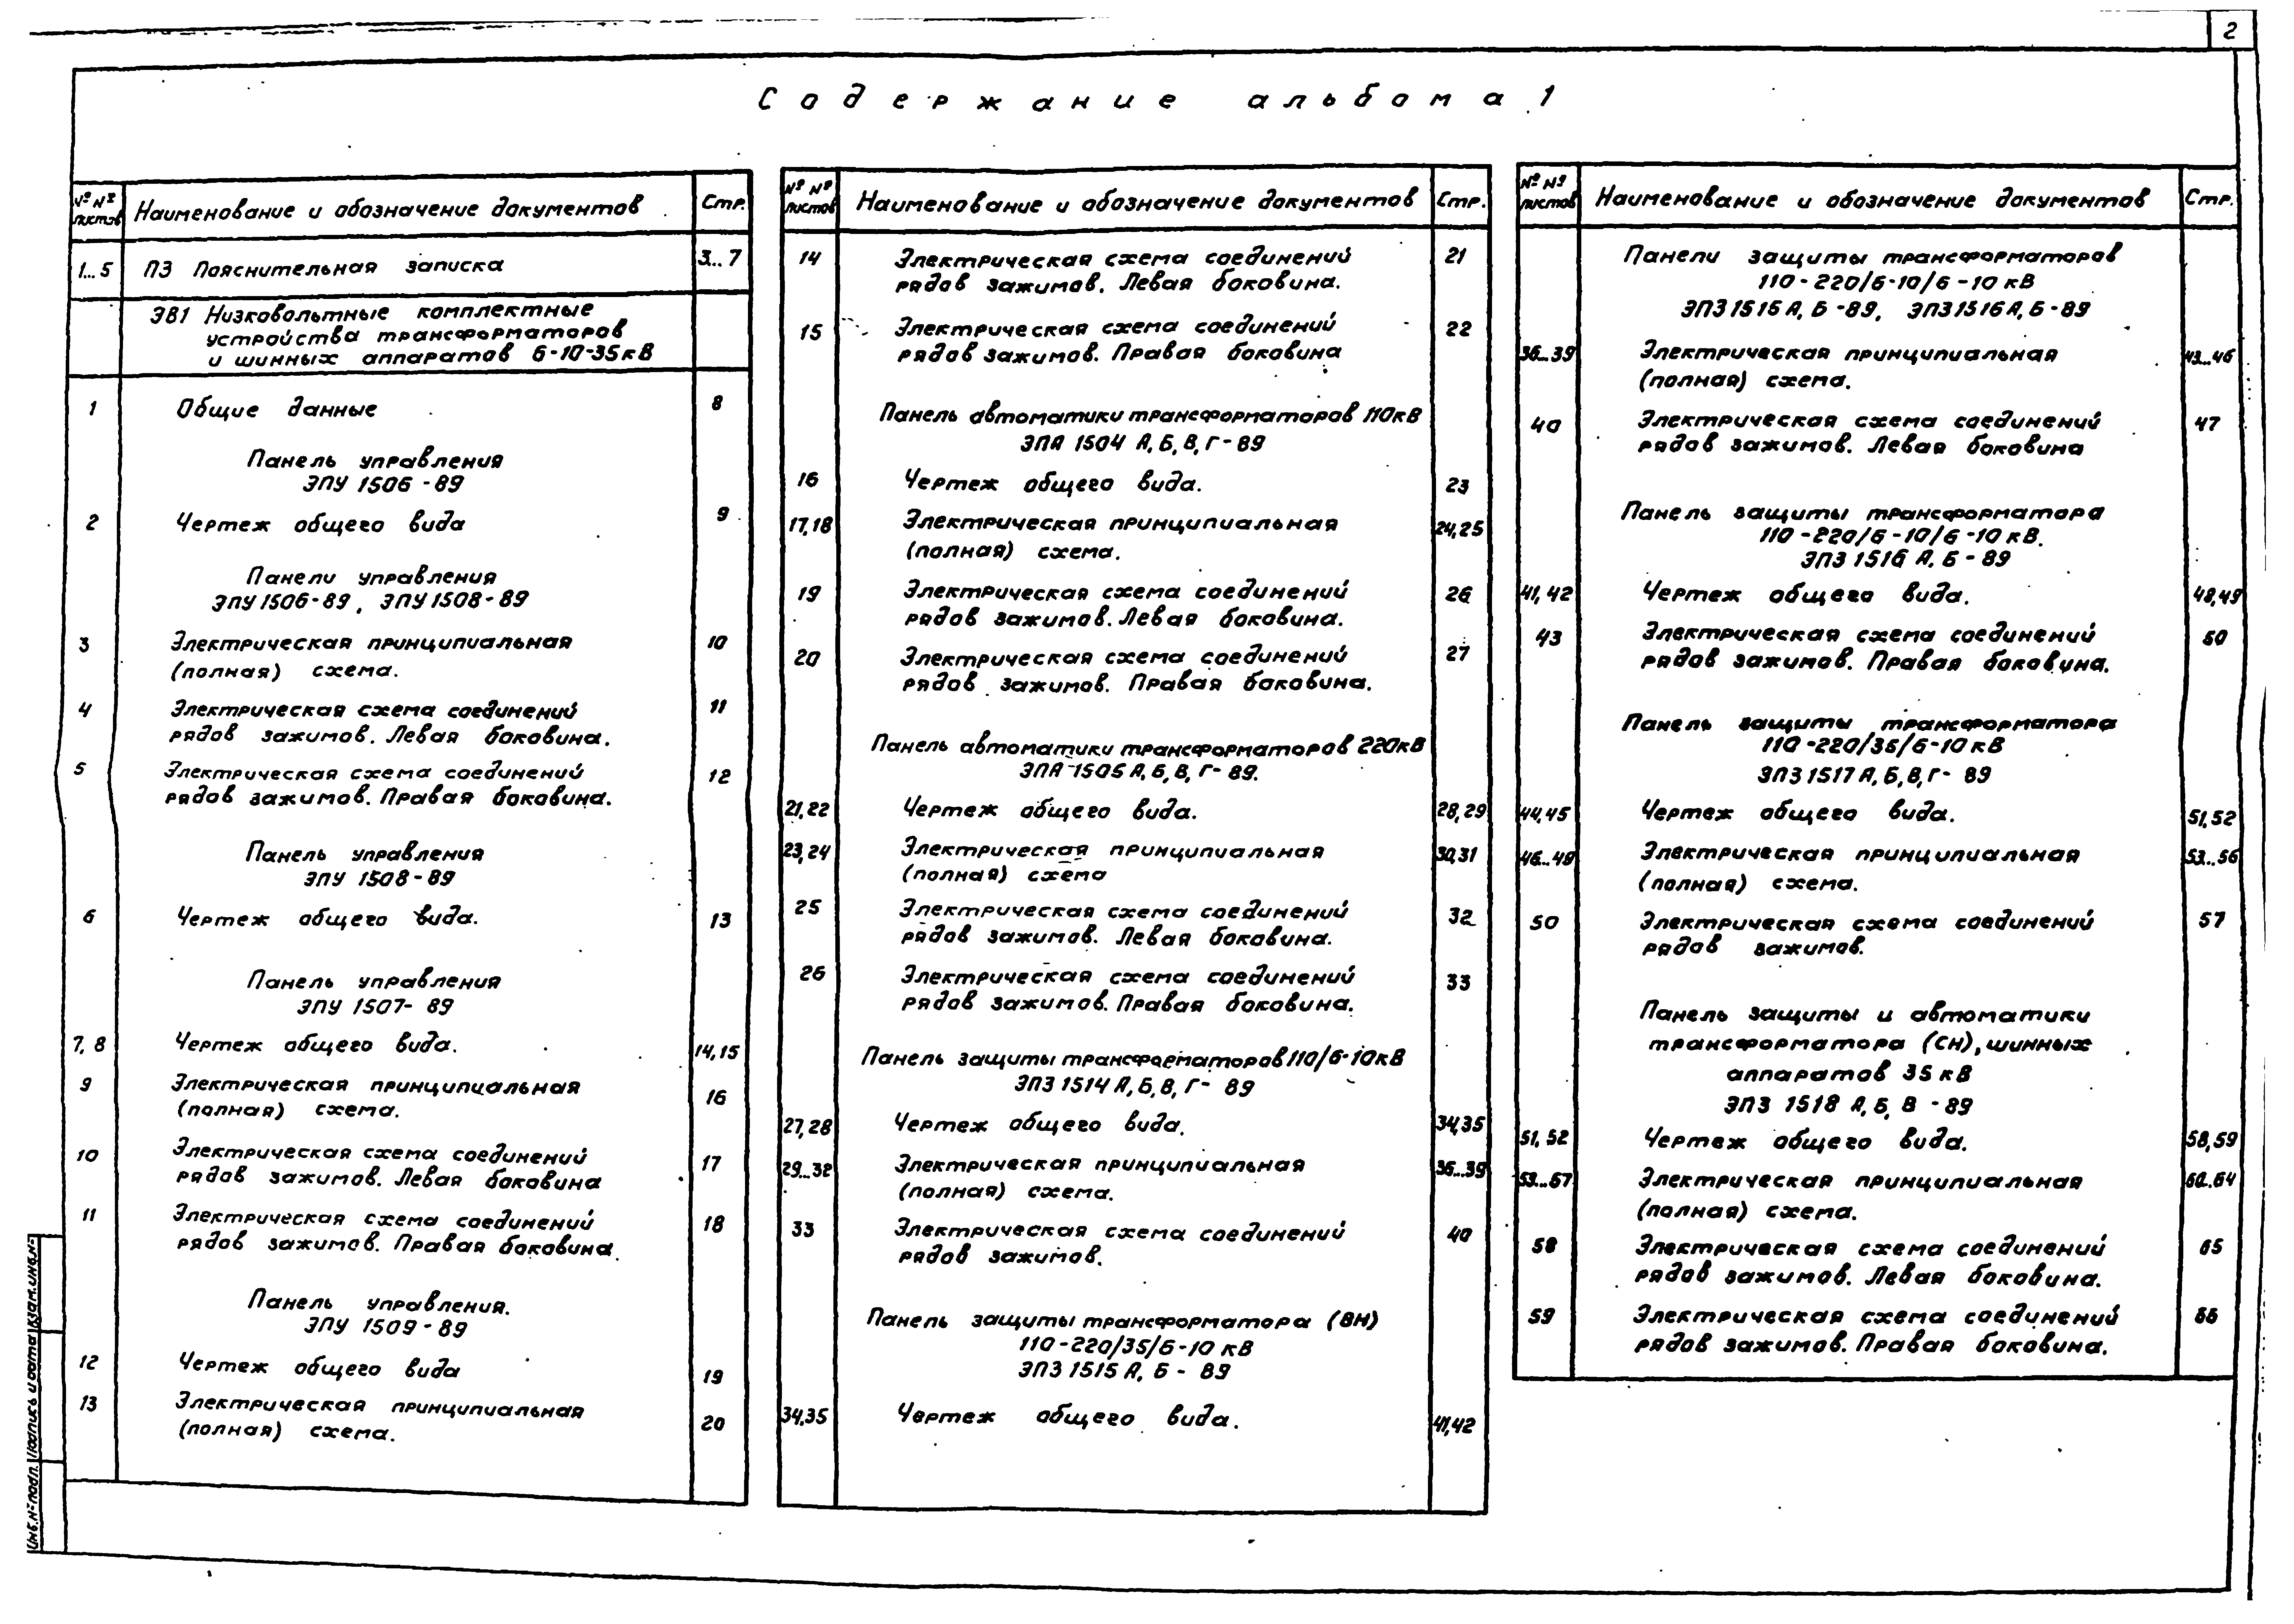 2
Содержание альбома 1
№ № листов
Наименование и обозначение документов
Стр.
1...5 ПЗ Пояснительная записка 3...7
ЭВ1 Низковольтные комплектные
устройства трансформаторов
и шинных аппаратов 6-10-35кВ
1 Общие данные 8
Панель управления
ЭПУ 1506-89
2 Чертеж общего вида 9
Панели управления
ЭПУ 1506-89, ЭПУ 1508-89
3 Электрическая принципиальная 10
(полная) схема.
4 Электрическая схема соединений 11
рядов зажимов. Левая боковина.
5 Электрическая схема соединений 12
рядов зажимов. Правая боковина.
Панель управления
ЭПУ 1508-89
6 Чертеж общего вида. 13
Панель управления
ЭПУ 1507-89
7, 8 Чертеж общего вида. 14,15
9 Электрическая принципиальная 16
(полная) схема.
10 Электрическая схема соединений 17
рядов зажимов. Левая боковина
11 Электрическая схема соединений 18
рядов зажимов. Правая боковина.
Панель управления.
ЭПУ 1509-89
12 Чертеж общего вида 19
13 Электрическая принципиальная 20
(полная) схема.
№ № листов
Наименование и обозначение документов
Стр.
14 Электрическая схема соединений 21
рядов зажимов. Левая боковина.
15 Электрическая схема соединений 22
рядов зажимов. Правая боковина
Панель автоматики трансформаторов 110кВ
ЭПА 1504 А, Б, В, Г-89
16 Чертеж общего вида. 23
17,18 Электрическая принципиальная 24,25
(полная) схема.
19 Электрическая схема соединений 26
рядов зажимов. Левая боковина.
20 Электрическая схема соединений 27
рядов зажимов. Правая боковина.
Панель автоматики трансформаторов 220кВ
ЭПА 1505 А, Б, В, Г-89.
21,22 Чертеж общего вида. 28,29
23,24 Электрическая принципиальная 30,31
(полная) схема
25 Электрическая схема соединений 32
рядов зажимов. Левая боковина.
26 Электрическая схема соединений 33
рядов зажимов. Правая боковина.
Панель защиты трансформаторов 110/6-10кВ
ЭПЗ 1514 А, Б, В, Г-89
27,28 Чертеж общего вида. 34,35
29...32 Электрическая принципиальная 36...39
(полная) схема.
33 Электрическая схема соединений 40
рядов зажимов.
Панель защиты трансформатора (ВН)
110-220/35/6-10 кВ
ЭПЗ 1515 А, Б - 89
34,35 Чертеж общего вида. 41,42
№ № листов
Наименование и обозначение документов
Стр.
Панели защиты трансформаторов
110-220/6-10/6-10 кВ
ЭПЗ 1515 А, Б-89, ЭПЗ 1516 А, Б-89
36...39 Электрическая принципиальная 43...46
(полная) схема.
40 Электрическая схема соединений 47
рядов зажимов. Левая боковина
Панель защиты трансформатора
110-220/6-10/6-10 кВ.
ЭПЗ 1516 А, Б-89
41,42 Чертеж общего вида. 48,49
43 Электрическая схема соединений 50
рядов зажимов. Правая боковина.
Панель защиты трансформатора
110-220/35/6-10кВ
ЭПЗ 1517 А, Б, В, Г-89
44,45 Чертеж общего вида. 51,52
46...49 Электрическая принципиальная 53...56
(полная) схема.
50 Электрическая схема соединений 57
рядов зажимов.
Панель защиты и автоматики
трансформатора (СН), шинных
аппаратов 35 кВ
ЭПЗ 1518 А, Б, В - 89
51,52 Чертеж общего вида. 58,59
53...57 Электрическая принципиальная 60...64
(полная) схема.
58 Электрическая схема соединений 65
рядов зажимов. Левая боковина.
59 Электрическая схема соединений 66
рядов зажимов. Правая боковина.
Инв.№ подл. Подпись и дата Взам.инв.№